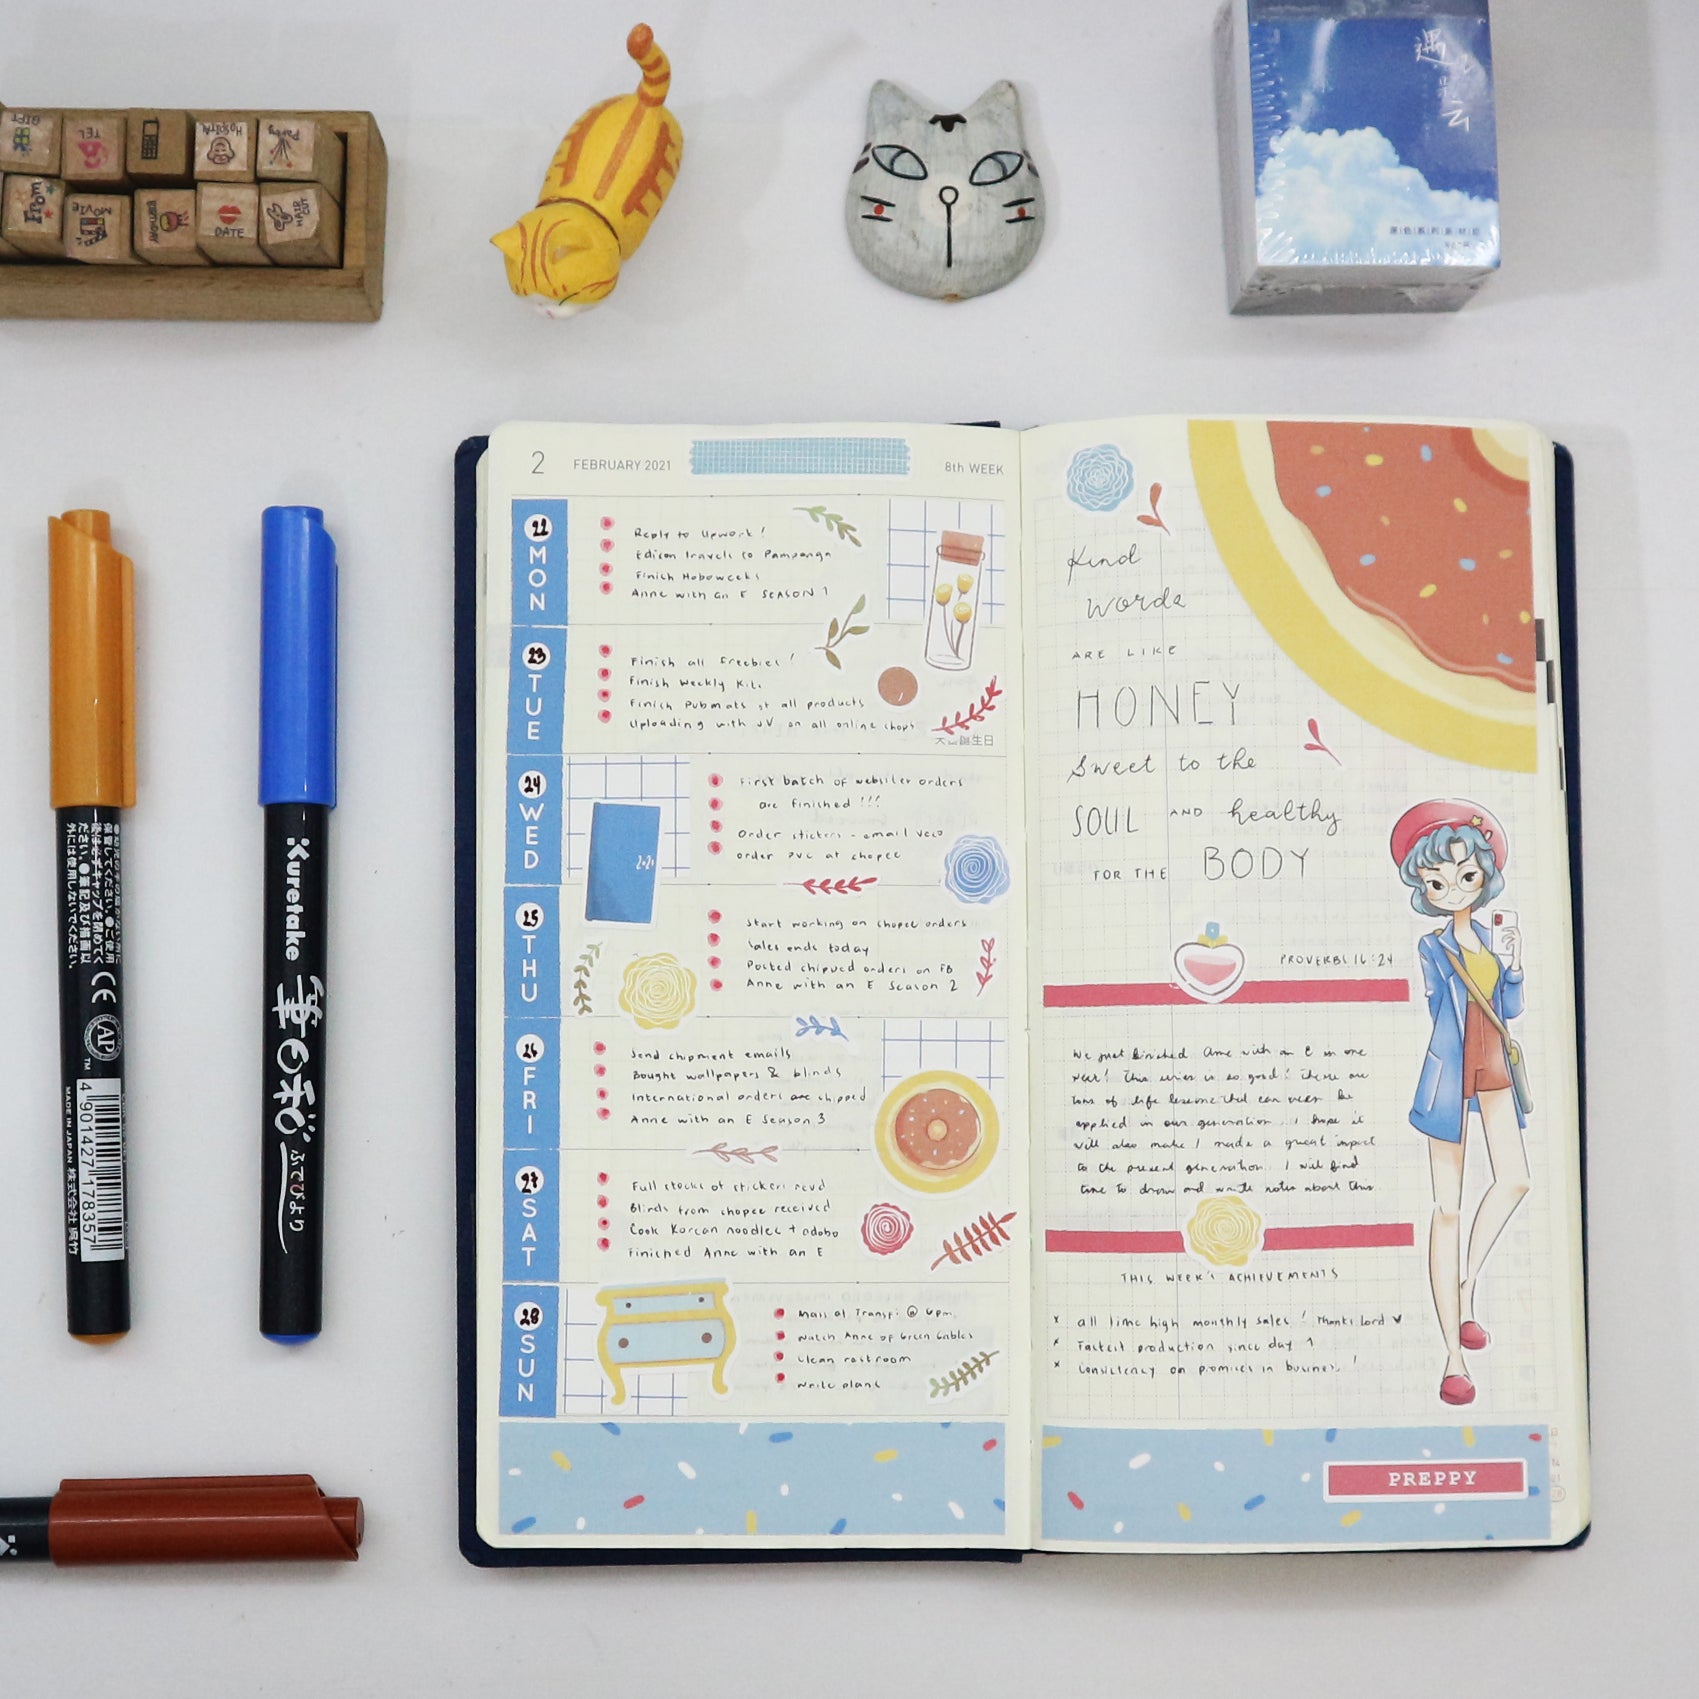 GIFT
TEL
HOSPITAL
Party
From
MOVIE
DATE
HAIR CUT
遇
云
Kuretake
筆日和
ふでびより
保管してください。
ださい。●筆記及び描画以
外には使用しないでください。
CE
AP
TM
4 901427 178357
MADE IN JAPAN 株式会社 呉竹
2 FEBRUARY 2021 8th WEEK
22 MON
Reply to Upwork!
Edison travels to Pampanga
Finish Hoboweeks
Anne with an E SEASON 1
23 TUE
Finish all freebies!
Finish Weekly Kit.
Finish Pubmats of all products
Uploading with JV on all online shops
誕生日
24 WED
First batch of website orders
are finished!!!
Order stickers - email
order pvc at shopee
2021
25 THU
Start working on shopee orders
Sales ends today
Posted shipped orders on FB
Anne with an E Season 2
26 FRI
Send shipment emails
Bought wallpapers & blinds
International orders are shipped
Anne with an E Season 3
27 SAT
Full stocks of stickers rcvd
Blinds from shopee received
Cook Korean noodles + adobo
Finished Anne with an E
28 SUN
Mass at Transfi @ 6pm
Watch Anne of Green Gables
Clean restroom
Write plans
Kind
words
ARE LIKE
HONEY
Sweet to the
SOUL AND healthy
FOR THE BODY
PROVERBS 16:24
We just finished Anne with an E in one
week! This series is so good! There are
tons of life lessons that can even be
applied in our generation. I hope it
will also make / made a great impact
to the present generation. I will find
time to draw and write notes about this.
THIS WEEK'S ACHIEVEMENTS
x all time high monthly sales! Thanks Lord ♥
x Fastest production since day 1
x Consistency on promises in business!
PREPPY